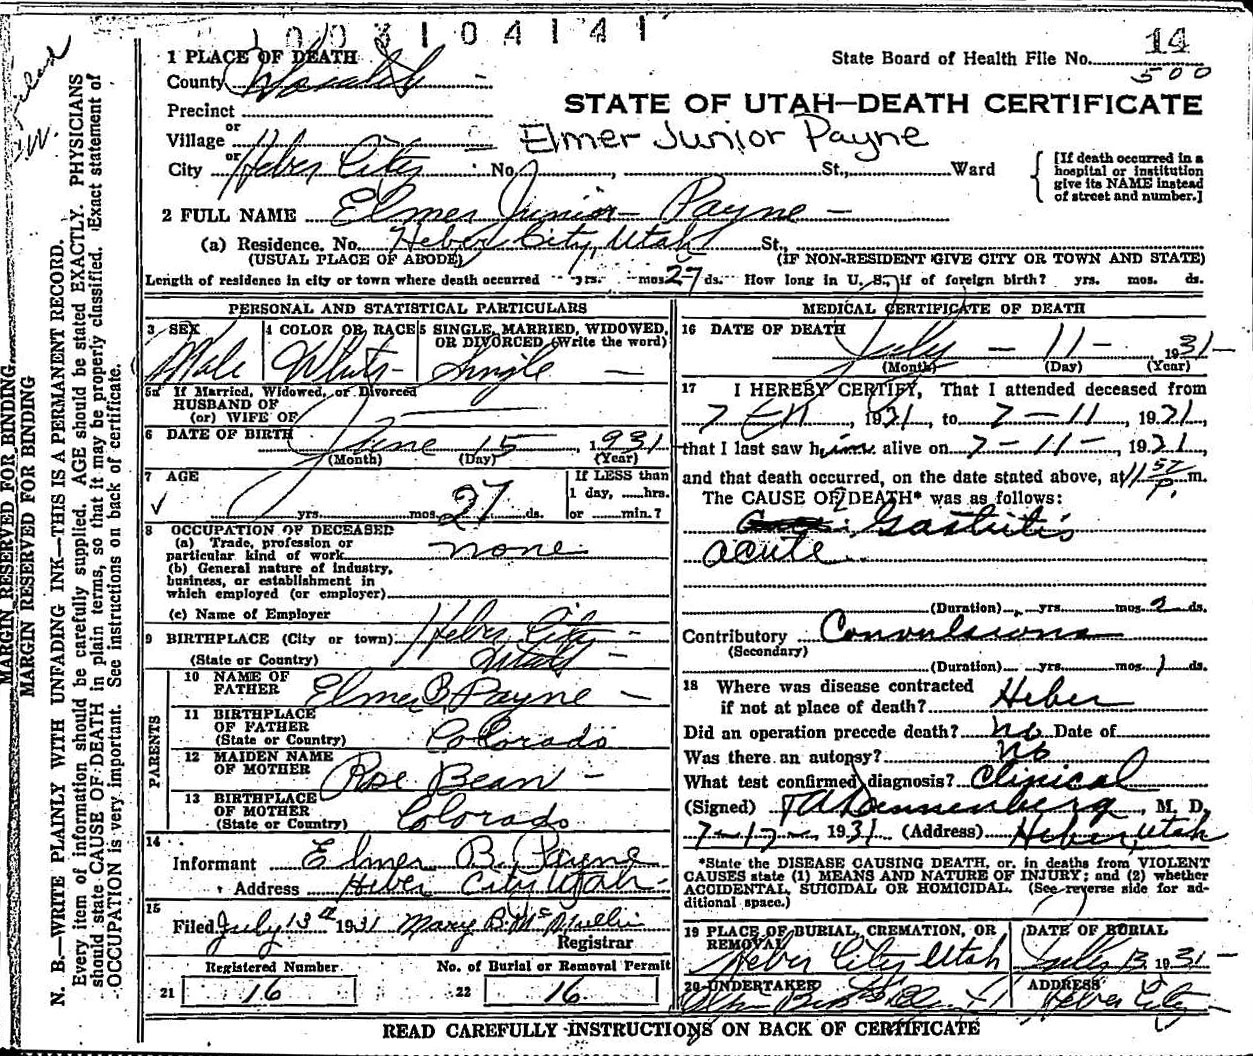 1003104141
14
500
State Board of Health File No.
1 PLACE OF DEATH
County Wasatch
STATE OF UTAH—DEATH CERTIFICATE
Precinct
or
Village
Elmer Junior Payne
or
City Heber City No. , St., Ward
[If death occurred in a hospital or institution give its NAME instead of street and number.]
2 FULL NAME Elmer Junior Payne
(a) Residence. No. Heber City, Utah St.,
(USUAL PLACE OF ABODE) (IF NON-RESIDENT GIVE CITY OR TOWN AND STATE)
Length of residence in city or town where death occurred yrs. mos. 27 ds. How long in U. S., if of foreign birth? yrs. mos. ds.
PERSONAL AND STATISTICAL PARTICULARS
3 SEX
Male
4 COLOR OR RACE
White
5 SINGLE, MARRIED, WIDOWED, OR DIVORCED (Write the word)
Single
5a If Married, Widowed, or Divorced
HUSBAND OF
(or) WIFE OF
6 DATE OF BIRTH
June 15, 1931
(Month) (Day) (Year)
7 AGE
yrs. mos. 27 ds.
If LESS than
1 day, hrs.
or min.?
8 OCCUPATION OF DECEASED
(a) Trade, profession or
particular kind of work none
(b) General nature of industry,
business, or establishment in
which employed (or employer)
(c) Name of Employer
9 BIRTHPLACE (City or town) Heber City
(State or Country) Utah
PARENTS
10 NAME OF
FATHER Elmer B. Payne
11 BIRTHPLACE
OF FATHER
(State or Country) Colorado
12 MAIDEN NAME
OF MOTHER Rose Bean
13 BIRTHPLACE
OF MOTHER
(State or Country) Colorado
14
Informant Elmer B. Payne
Address Heber City Utah
15
Filed July 13th 1931 Mary B. McMullin
Registrar
Registered Number
21 16
No. of Burial or Removal Permit
22 16
MEDICAL CERTIFICATE OF DEATH
16 DATE OF DEATH
July - 11 - 1931
(Month) (Day) (Year)
17 I HEREBY CERTIFY, That I attended deceased from
7-11, 1931, to 7-11, 1931,
that I last saw him alive on 7-11-, 1931,
and that death occurred, on the date stated above, at 11 52 P. m.
The CAUSE OF DEATH* was as follows:
Gastritis
acute
(Duration) yrs. mos. 2 ds.
Contributory Convulsions
(Secondary)
(Duration) yrs. mos. 1 ds.
18 Where was disease contracted
if not at place of death? Heber
Did an operation precede death? no Date of
Was there an autopsy? no
What test confirmed diagnosis? Clinical
(Signed) T A Dannenberg, M. D.
1931 (Address) Heber, Utah
*State the DISEASE CAUSING DEATH, or, in deaths from VIOLENT
CAUSES state (1) MEANS AND NATURE OF INJURY; and (2) whether
ACCIDENTAL, SUICIDAL OR HOMICIDAL. (See reverse side for ad-
ditional space.)
19 PLACE OF BURIAL, CREMATION, OR
REMOVAL
Heber City Utah
DATE OF BURIAL
July 13, 1931
20 UNDERTAKER
ADDRESS
Heber City
READ CAREFULLY INSTRUCTIONS ON BACK OF CERTIFICATE
MARGIN RESERVED FOR BINDING.
MARGIN RESERVED FOR BINDING
N. B.—WRITE PLAINLY WITH UNFADING INK—THIS IS A PERMANENT RECORD.
Every item of information should be carefully supplied. AGE should be stated EXACTLY. PHYSICIANS
should state CAUSE OF DEATH in plain terms, so that it may be properly classified. Exact statement of
OCCUPATION is very important. See instructions on back of certificate.